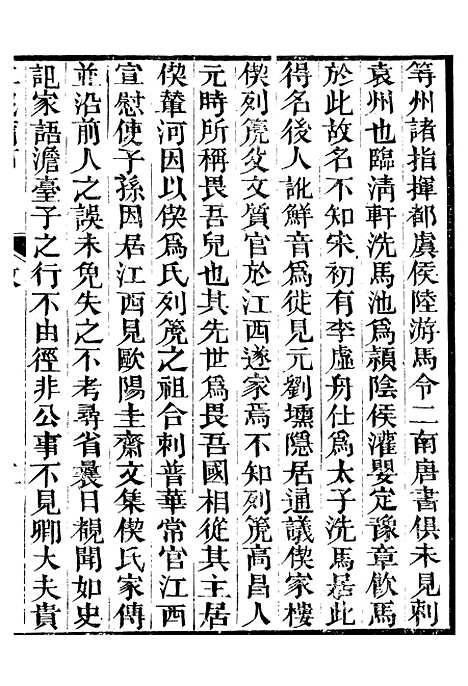 等州諸指揮都虞侯陸游馬令二南唐書俱未見刺
袁州也臨淸軒洗馬池爲潁陰侯灌嬰定豫章飮馬
於此故名不知宋初有李虛舟仕爲太子洗馬居此
得名後人訛鮮音爲徙見元劉壎隱居通議偰家樓
偰列箎父文質官於江西遂家焉不知列箎高昌人
元時所稱畏吾兒也其先世爲畏吾國相從其主居
偰輦河因以偰爲氏列箎之祖合剌普華常官江西
宣慰使子孫因居江西見歐陽圭齋文集偰氏家傳
並沿前人之誤未免失之不考尋省曩日覩聞如史
記家語澹臺子之行不由徑非公事不見卿大夫責